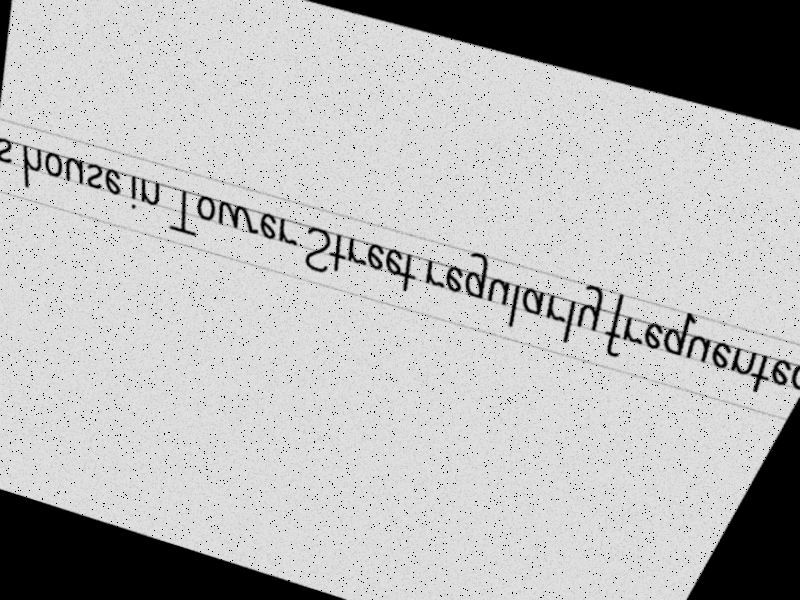 s house in Tower Street regularly frequented